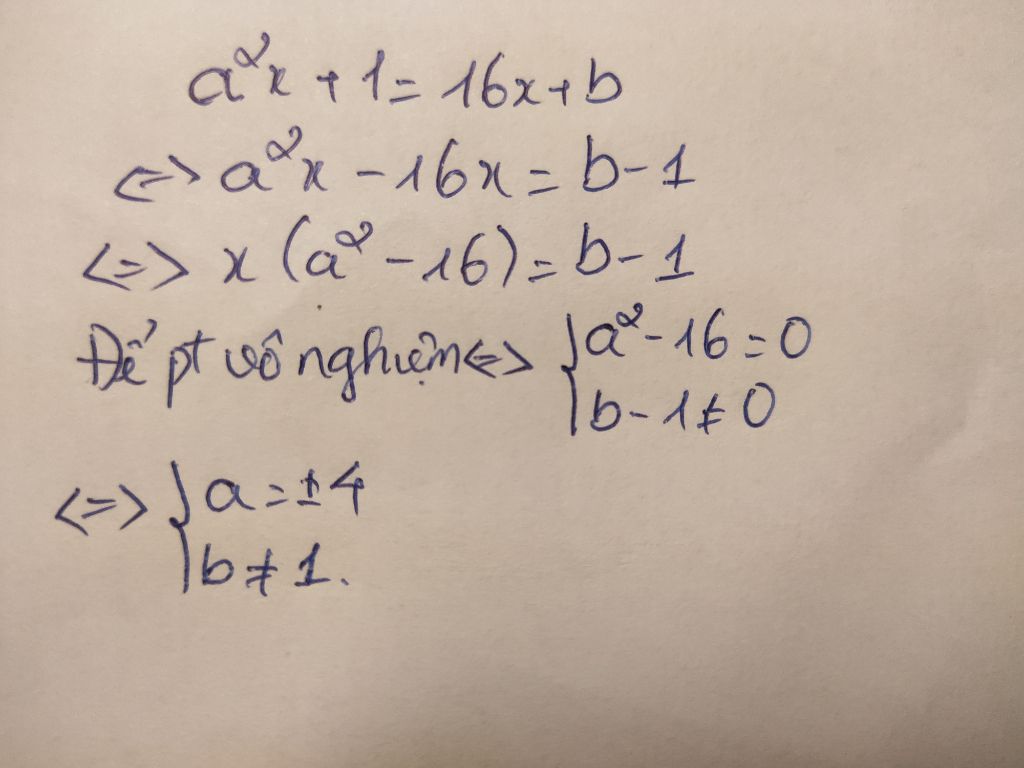 a²x + 1 = 16x + b
<=> a²x - 16x = b - 1
<=> x (a² - 16) = b - 1
Để pt vô nghiệm <=> { a² - 16 = 0
b - 1 ≠ 0
<=> { a = ±4
b ≠ 1.